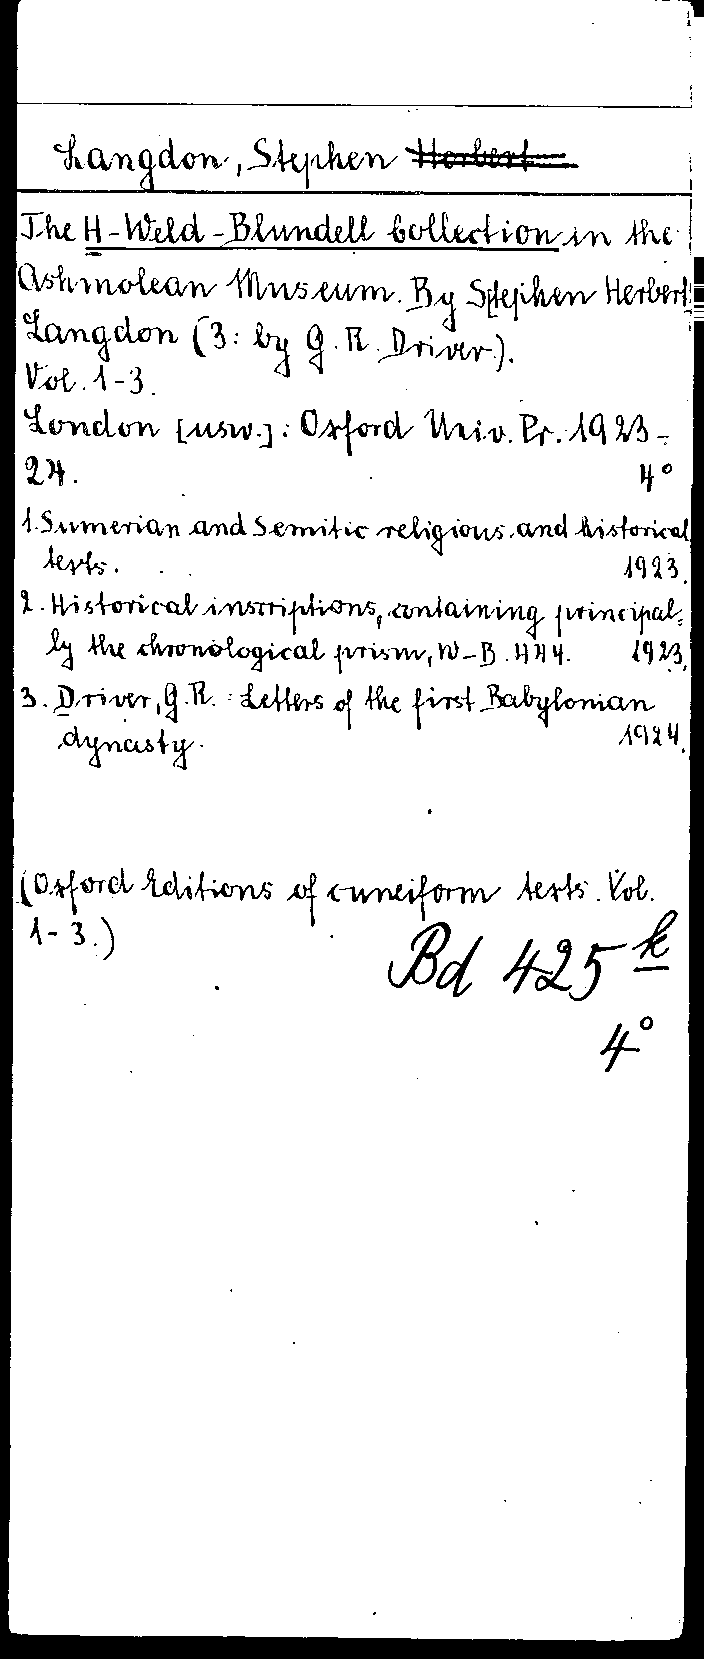 Langdon, Stephen Herbert
The H-Weld-Blundell Collection in the
Ashmolean Museum. By Stephen Herbert
Langdon (3: by G. R. Driver).
Vol. 1-3.
London [usw.]: Oxford Univ. Pr. 1923-
24. 4°
1. Sumerian and Semitic religious and historical
texts. 1923.
2. Historical inscriptions, containing principal-
ly the chronological prism, W-B. 444. 1923.
3. Driver, G. R.: Letters of the first Babylonian
dynasty. 1924.
(Oxford Editions of cuneiform texts. Vol.
1-3.)
Bd 425 k
4°